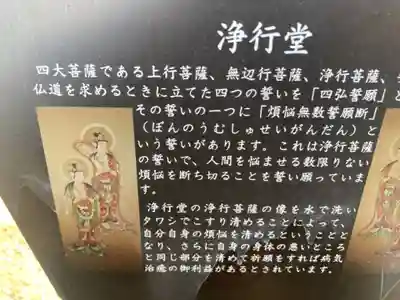 浄行堂
四大菩薩である上行菩薩、無辺行菩薩、浄行菩薩、
仏道を求めるときに立てた四つの誓いを「四弘誓願」と
その誓いの一つに「煩悩無数誓願断」
(ぼんのうむしゅせいがんだん)と
いう誓いがあります。これは浄行菩薩
の誓いで、人間を悩ませる数限りない
煩悩を断ち切ることを誓い願っていま
す。
浄行堂の浄行菩薩の像を水で洗い
タワシでこすり清めることによって、
自分自身の煩悩を清めるということと
なり、さらに自身の身体の悪いところ
と同じ部分を清めて祈願をすれば病気
治癒の御利益があるとされています。